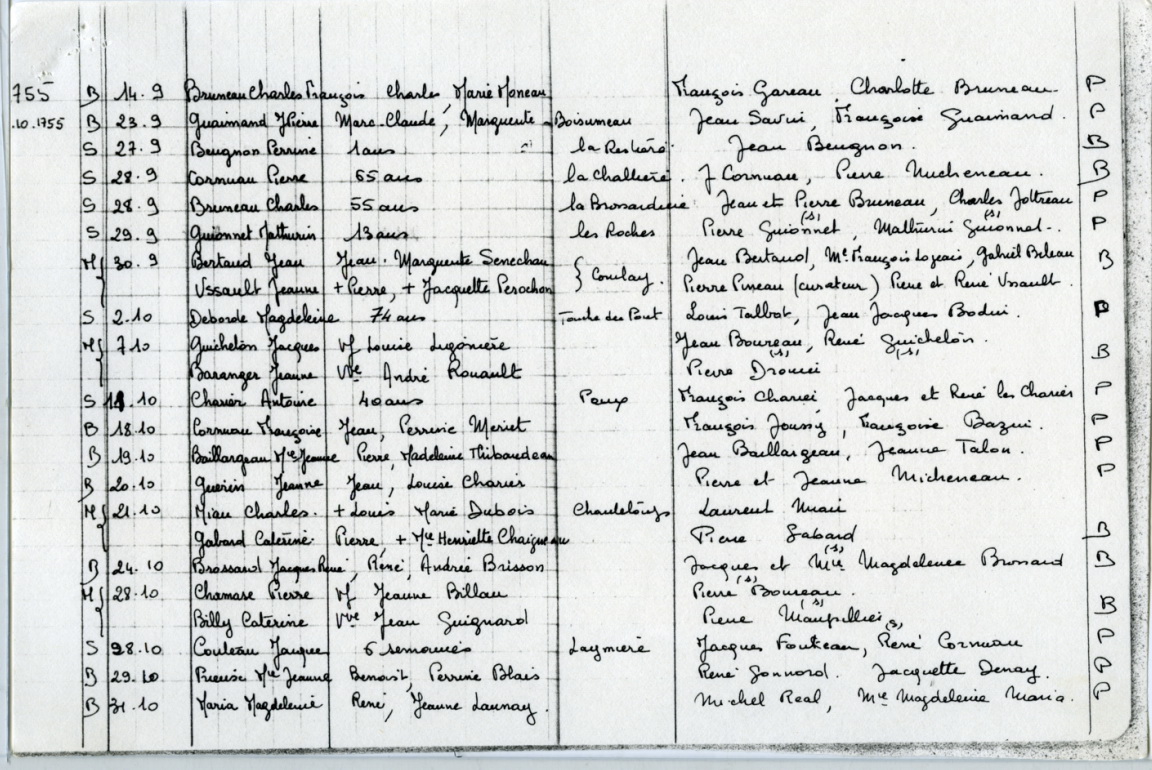 755 B 14.9 Bruneau Charles François Charles, Marie Moneau François Gareau, Charlotte Bruneau P
.10.1755 B 23.9 Guaimand Marc-Claude, Marguerite Boisumeau Jean Savin, Françoise Guaimand. P
S 27.9 Beugnon Perrine 1 ans Jean Beugnon. B
S 28.9 Cornuau Pierre 65 ans la Challière. J Cornuau, Pierre Micheneau. B
S 28.9 Bruneau Charles 55 ans la Brossardière Jean et Pierre Bruneau, Charles Jottreau P
S 29.9 Guionnet Mathurin 13 ans les Roches Pierre Guionnet (s), Mathurin Guionnet (s) P
M { 30.9 Bertaud Jean Jean. Marguerite Senechau } Coulay. Jean Bertaud, Me François Logeais, Gabriel Beleau B
Ussault Jeanne + Pierre, + Jacquette Perochon Pierre Pineau (curateur) Pierre et René Ussault.
S 2.10 Deborde Magdeleine 74 ans Touche du Pont Louis Talbot, Jean Jacques Bodin. P
M { 7.10 Guichelon Jacques Vf Louise Jean Boureau, René Guichelon. (s)
Baranger Jeanne Vve André Rouault Pierre (s) B
S 11.10 Charier Antoine 40 ans Poux François Jacques et René les Chariers P
B 18.10 Cornuau Françoise Jean, Perrine Meriet François Françoise Bazin. P
B 19.10 Baillargeau Mie Jeanne Pierre, Madeleine Thibaudeau Jean Baillargeau, Jeanne Talon. P
B 20.10 Guerin Jeanne Jean, Louise Charier Pierre et Jeanne Micheneau. P
M { 21.10 Miau Charles. + Louis Marie Dubois Laurent
Gabard Caterine. Pierre, + Mie Henriette Chaigneau Pierre Gabard B
B 24.10 Brossard Jacques René, René, Andrée Brisson Jacques et Mie (s) Magdelenee Brossard B
M { 28.10 Chamare Pierre Vf Jeanne Billau Pierre (s) Boureau.
Billy Caterine Vve Jean Guignard Pierre (s) B
S 28.10 Couteau Jacques 6 semaines Jacques René (s) Cornuau P
B 29.10 Mie Jeanne Benoist, Perrine Blais René Gonnord. Jacquette Denay. P
B 31.10 Maria Magdeleine René, Jeanne Launay. Michel Real, Mie Magdeleine Maria. P